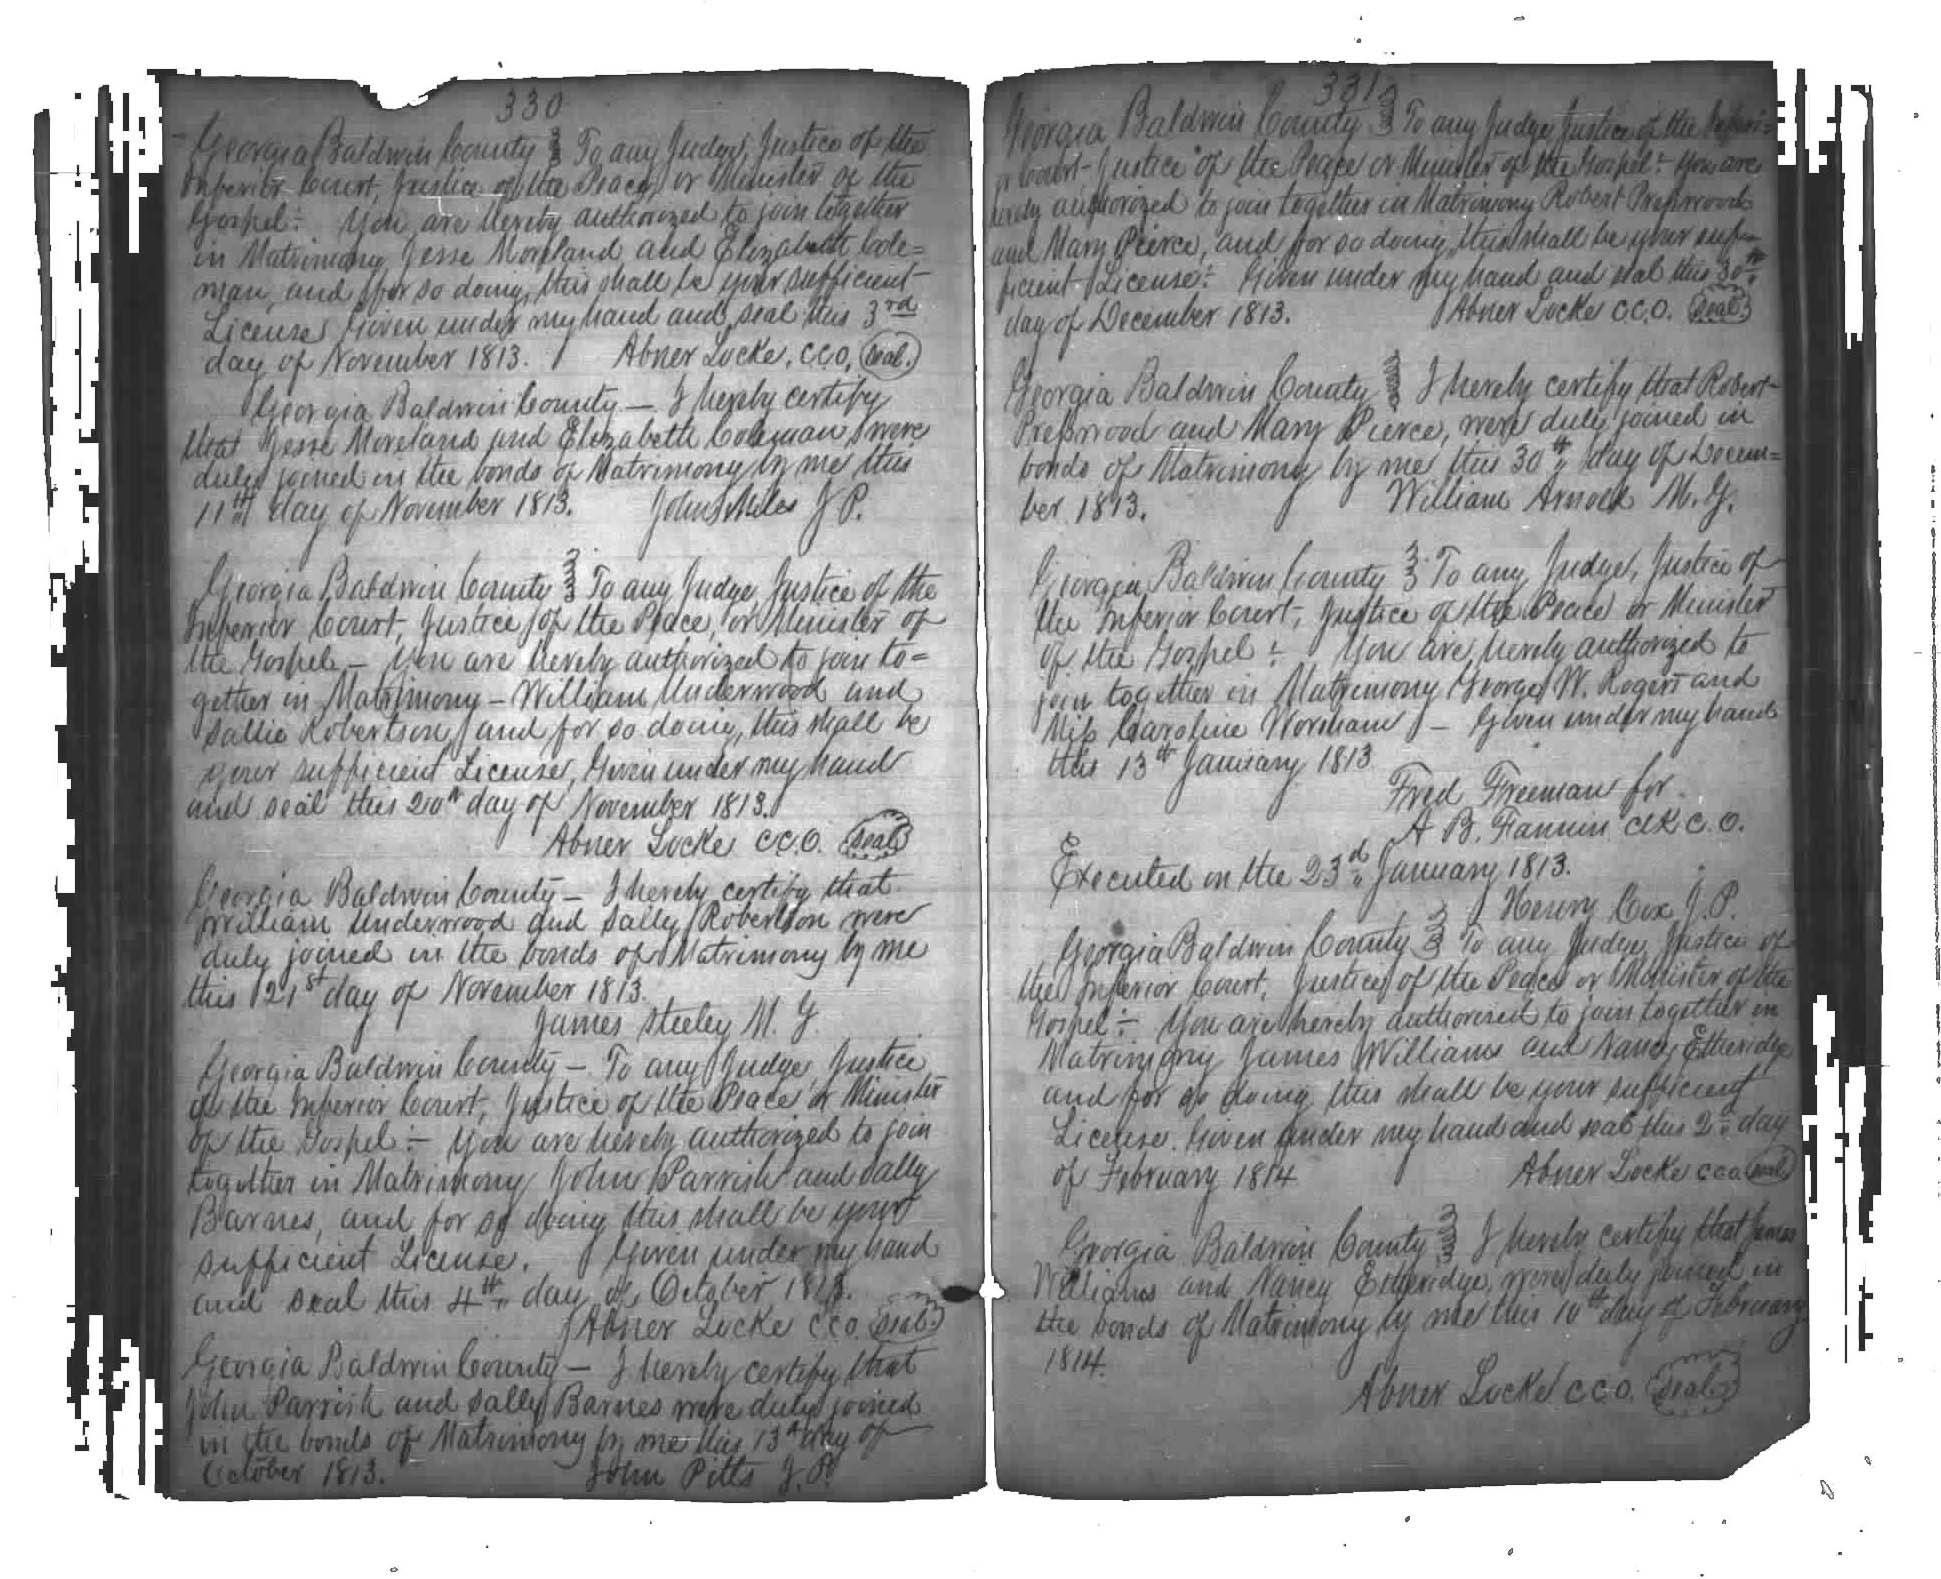 330
Georgia Baldwin County } To any Judge, Justice of the
Inferior Court, Justice of the Peace, or Minister of the
Gospel:- You are hereby authorized to join together
in Matrimony Jesse Moreland and Elizabeth Cole=
man, and for so doing, this shall be your sufficient
License. Given under my hand and seal this 3rd
day of November 1813. Abner Locke, C.C.O. Seal.
Georgia Baldwin County — I hereby certify
that Jesse Moreland and Elizabeth Coleman were
duly joined in the bonds of Matrimony by me this
11th day of November 1813. John Miles J P.
Georgia Baldwin County } To any Judge, Justice of the
Inferior Court, Justice of the Peace, or Minister of
the Gospel – You are hereby authorized to join to=
gether in Matrimony – William Underwood and
Sallie Robertson, and for so doing, this shall be
your sufficient License, Given under my hand
and seal this 20th day of November 1813.
Abner Locke C.C.O. Seal
Georgia Baldwin County – I hereby certify that
William Underwood and Sally Robertson were
duly joined in the bonds of Matrimony by me
this 21st day of November 1813.
James Steeley M. G.
Georgia Baldwin County – To any Judge, Justice
of the Inferior Court, Justice of the Peace or Minister
of the Gospel:- You are hereby authorized to join
together in Matrimony John Parrish and Sally
Barnes, and for so doing this shall be your
sufficient License. Given under my hand
and seal this 4th day of October 1813.
Abner Locke C.C.O. Seal.
Georgia Baldwin County – I hereby certify that
John Parrish and Sally Barnes were duly joined
in the bonds of Matrimony by me this 13th day of
October 1813. John Pitts J. P.
331
Georgia Baldwin County } To any Judge, Justice of the Inferi=
or Court Justice of the Peace or Minister of the Gospel:- You are
hereby authorized to join together in Matrimony Robert Presswood
and Mary Pierce, and for so doing, this shall be your suf-
ficient License:- Given under my hand and seal this 30th
day of December 1813. Abner Locke C.C.O. Seal
Georgia Baldwin County } I hereby certify that Robert
Presswood and Mary Pierce, were duly joined in
bonds of Matrimony by me this 30th day of Decem=
ber 1813. William Arnold M. G.
Georgia Baldwin County } To any Judge, Justice of
the Inferior Court, Justice of the Peace or Minister
of the Gospel:- You are hereby authorized to
join together in Matrimony George W. Rogers and
Miss Caroline Worsham – Given under my hand
this 13th January 1813
Fred Freeman for
A B. Fannin Clk C. O.
Executed on the 23d January 1813.
Henry Cox J. P.
Georgia Baldwin County } To any Judge, Justice of
the Inferior Court, Justice of the Peace or Minister of the
Gospel:- You are hereby authorized to join together in
Matrimony James Williams and Nancy Etheridge
and for so doing this shall be your sufficient
License. Given under my hand and seal this 2nd day
of February 1814 Abner Locke C.C.O. Seal
Georgia Baldwin County } I hereby certify that James
Williams and Nancy Etheridge, were duly joined in
the bonds of Matrimony by me this 10th day of February
1814.
Abner Locke C.C.O. Seal